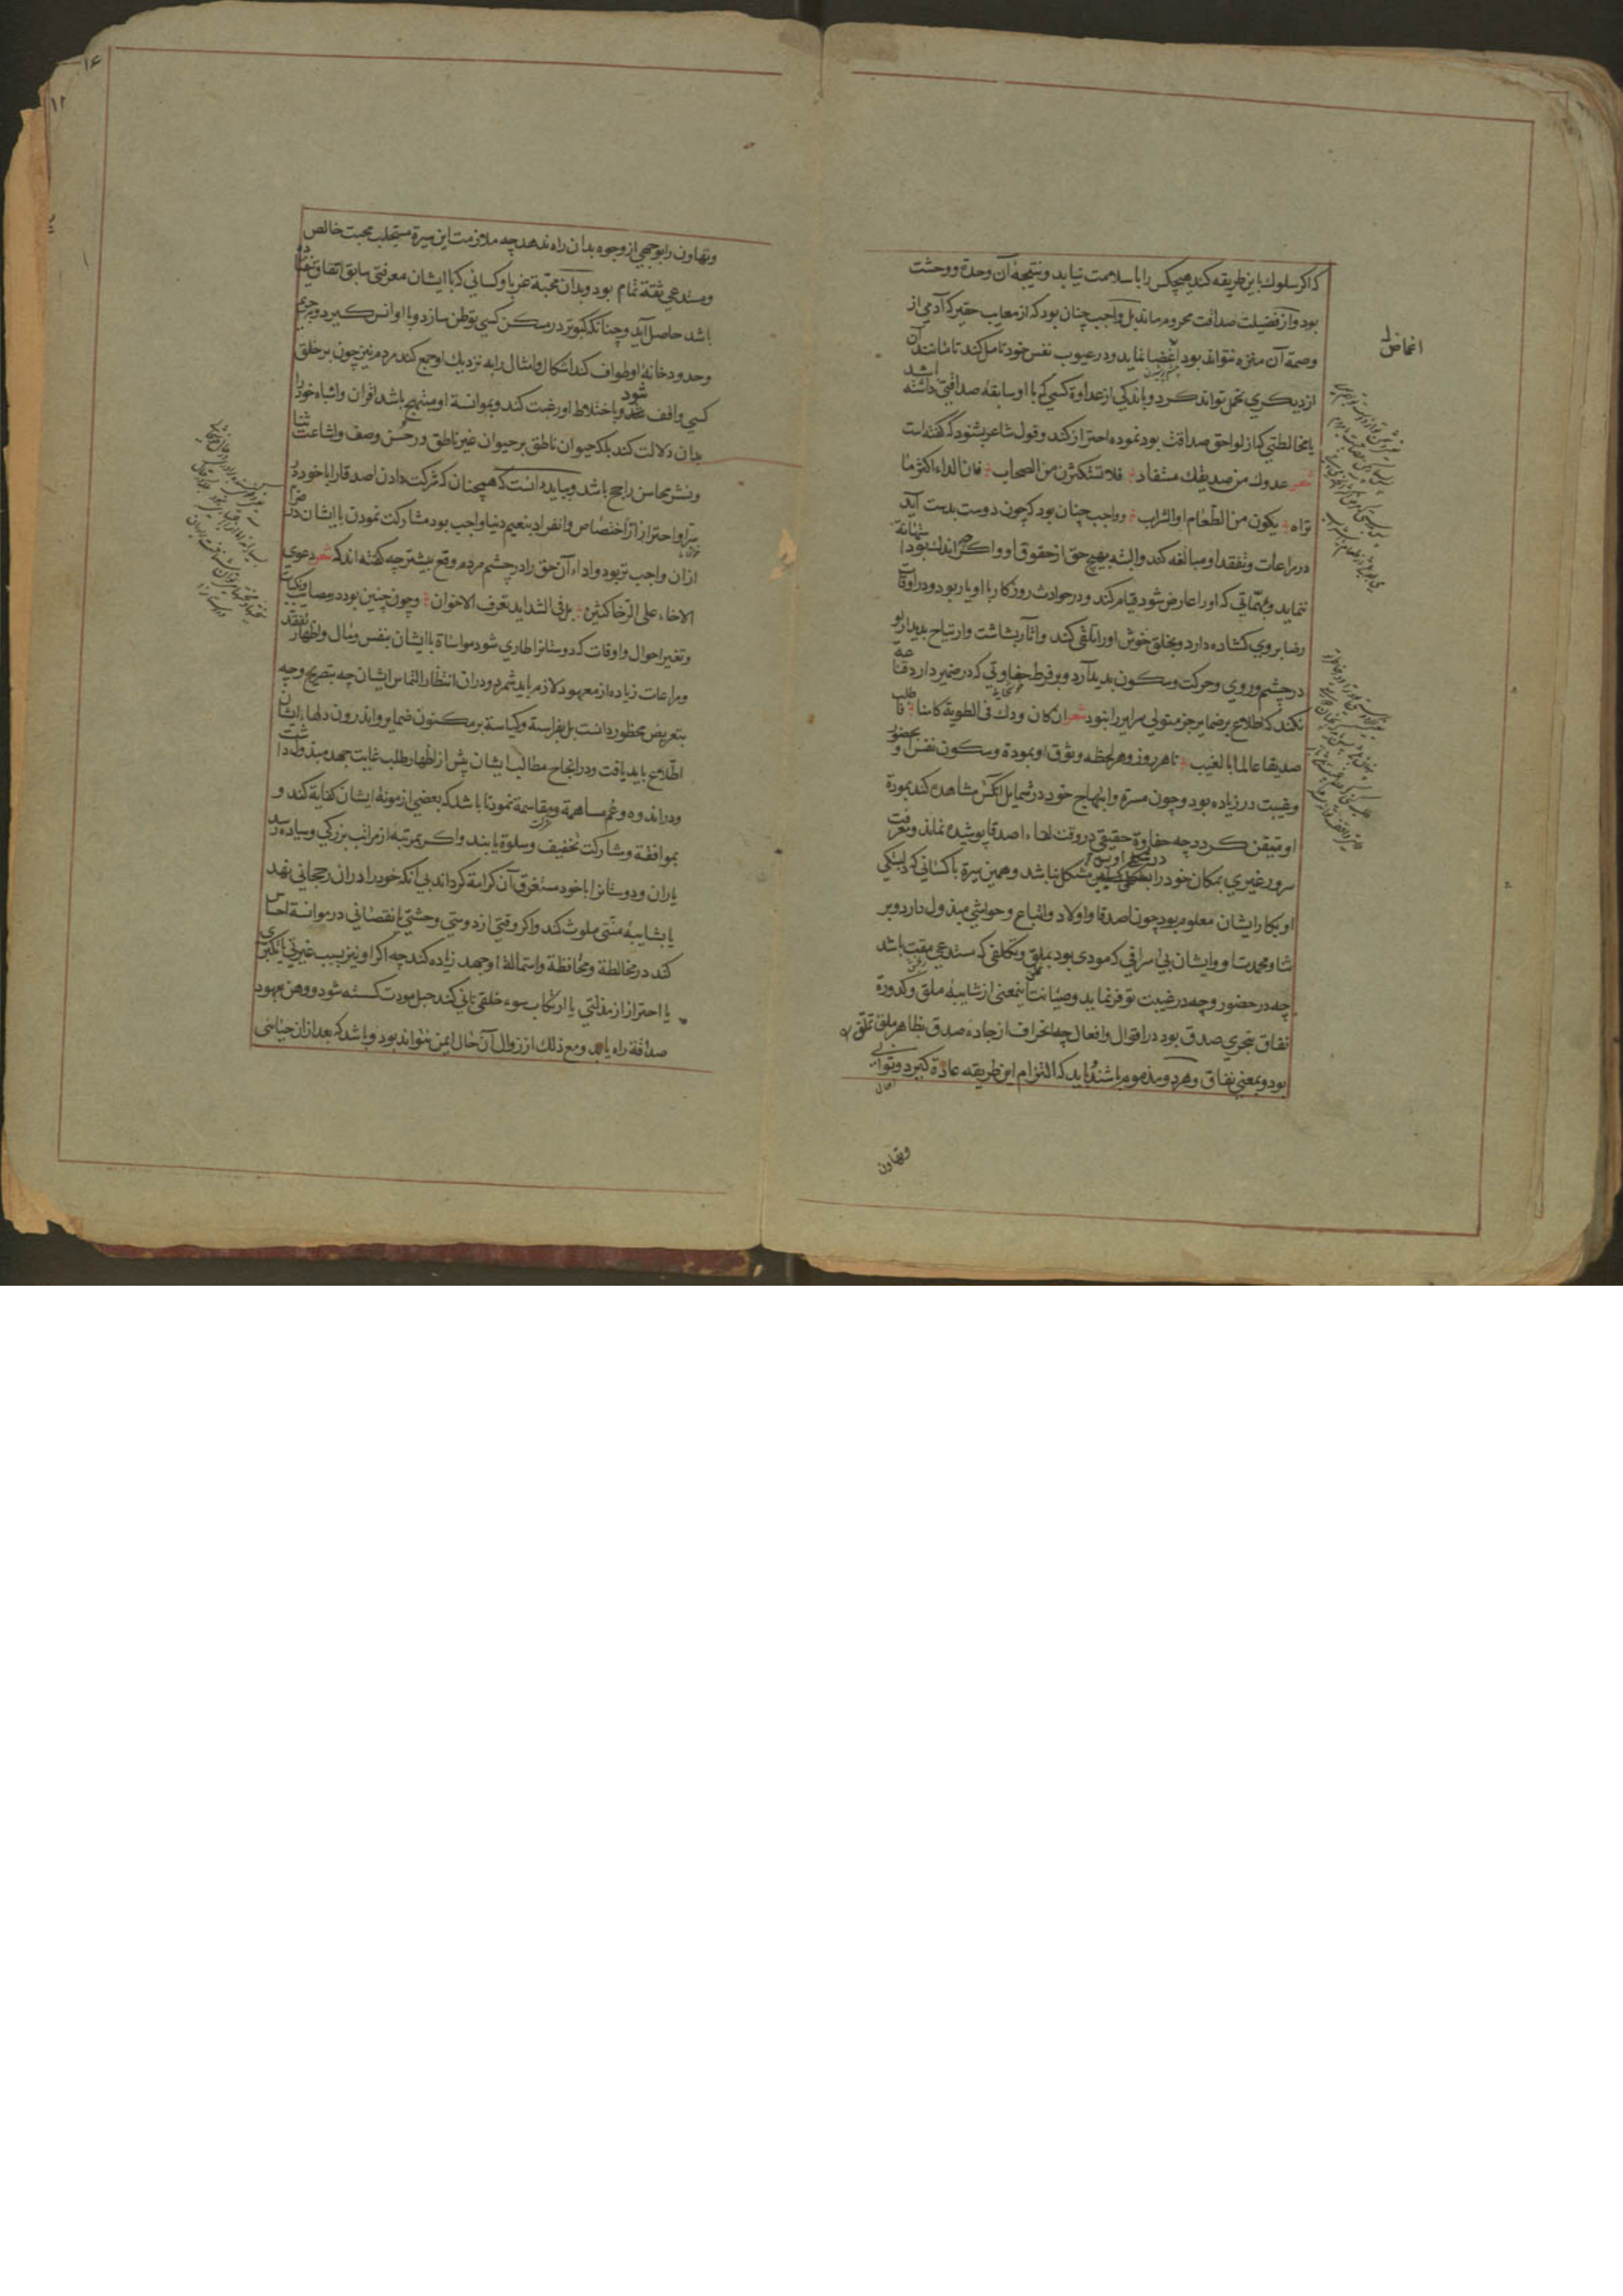 که اکر سلوك باین طریقه کند هیچکس را با سلامت نیابد و نتیجهٔ آن وحدة و وحشت
بود و از فضیلت صداقت محروم ماند بل واجب چنان بود که از معایب حقیر که آدمی از
وصمة آن منزه نتواند بود اغضا نماید و در عیوب نفس خود تامل کند تا مانند آن
از دیکری تحمل تواند کرد و باندکی از عداوة کسی که با او سابقهٔ صداقتی داشته باشد
یا مخالطتی که از لواحق صداقت بود نموده احتراز کند و قول شاعر بشنود که کفته است
شعر عدوك من صدیقك مستفاد فلا تستکثرن من الصحاب فان الداء اکثر ما
تراه یکون من الطعام او الشراب و واجب چنان بود که چون دوست بدست آید
در مراعات و تفقد او مبالغه کند و البته بهیچ حق از حقوق او و اکر چه اندك بود استهانة
ننماید و بمهماتی که او را عارض شود قیام کند و در حوادث روزکار با او یار بود و در اوقات
رضا بروی کشاده دارد و بخلق خوش او را تلقی کند و آثار بشاشت و ارتیاح بدیدار او
در چشم و روی و حرکت و سکون بدید آرد و بر فرط حفاوتی که در ضمیر دارد قناعة
نکند که اطلاع بر ضمایر جز متولی سرایر را نبود شعر ان کان ودك فی الطویة کامنا فاطلب
صدیقا عالما بالغیب تا هر روز و هر لحظه وثوق او بمودة و سکون نفس او بحضور
و غیبت در زیاده بود و چون مسرة و ابتهاج خود در شمایل آنکس مشاهده کند بمودة
او متیقن کردد چه حفاوة حقیقی در وقت لقاء اصدقا پوشیده نماند و معرفت
سرور غیری بمکان خود را مشکل نباشد و همین سیرة با کسانی که دلبستکی
او بکار ایشان معلوم بود چون اصدقا و اولاد و اتباع و حواشی مبذول دارد و بر
ثنا و محمدت او و ایشان بی اسرافی که مودی بود بملق و تکلفی که مستدعی مقت باشد
چه در حضور و چه در غیبت توفر نماید و صیانت اینمعنی از شایبهٔ ملق و کدورة
نفاق بتحری صدق بود در اقوال و افعال چه انحراف از جادهٔ صدق بظاهر ملق تملق
بود و بمعنی نفاق و هر دو مذموم باشند و باید که التزام این طریقه عادة کیرد و توانی
وتهاون
اغماض
و تهاون را بوجهی از وجوه بدان راه ندهد چه ملازمت این سیرة مستجلب محبت خالص
و مستدعی ثقة تمام بود و بدان محبة غربا و کسانی که با ایشان معرفتی سابق اتفاق نیفتاده
باشد حاصل آید و چنانکه کبوتر در مسکن کسی توطن سازد و با او انس کیرد و بحریم
و حدود خانهٔ او طواف کند اشکال و امثال را به نزدیك او جمع کند مردم نیز چون بر خلق
کسی واقف شود و باختلاط او رغبت کند و بموانسة او مبتهج باشد اقران و اشباه خود را
بدان دلالت کند بلکه حیوان ناطق بر حیوان غیر ناطق در حسن وصف و اشاعت ثنا
و نشر محاسن راجح باشد و بباید دانست که همچنان که شرکت دادن اصدقا را با خود در
سرا و احتراز از اختصاص و انفراد بنعیم دنیا واجب بود مشارکت نمودن با ایشان در ضرا
از ان واجب تر بود و اداء آن حق را در چشم مردم وقع بیشتر چه کفته اند که شعر دعوی
الاخاء علی الرخا کثیرة بل فی الشداید تعرف الاخوان و چون چنین بود در مصایب و نکبات
و تغیر احوال و اوقات که دوستان را طاری شود مواساة با ایشان بنفس و مال و اظهار تفقد
و مراعات زیاده از معهود لازم باید شمرد و دران انتظار التماس ایشان چه بتصریح و چه
بتعریض محظور دانست بل بفراسة و کیاسة بر مکنون ضمایر و اندرون دلهاء ایشان
اطلاع باید یافت و در انجاح مطالب ایشان پیش از اظهار طلب غایت جهد مبذول داشت
و در اندوه و غم مساهمة و مقاسمة نمود تا باشد که بعضی از مونهٔ ایشان کفایة کند و
بموافقة و مشارکت تخفیف و سلوة یابند و اکر بمرتبهٔ از مراتب بزرکی و سیاده رسد
یاران و دوستانرا با خود مستغرق آن کرامة کرداند بی آنکه خود را دران رجحانی نهد
یا بشایبهٔ منتی ملوث کند و اکر وقتی از دوستی وحشتی یا نقصانی در موانسة احساس
کند در مخالطة و محافظة و استمالة او جهد زیاده کند چه اکر او نیز بسبب غیرتی یا تکبری
یا احتراز از مذلتی یا ارتکاب سوء خلقی تانی کند حبل مودت کسسته شود و وهن بعهود
صداقة راه یابد و مع ذلك از زوال آن حال ایمن نتواند بود و باشد که بعد از ان حیائی